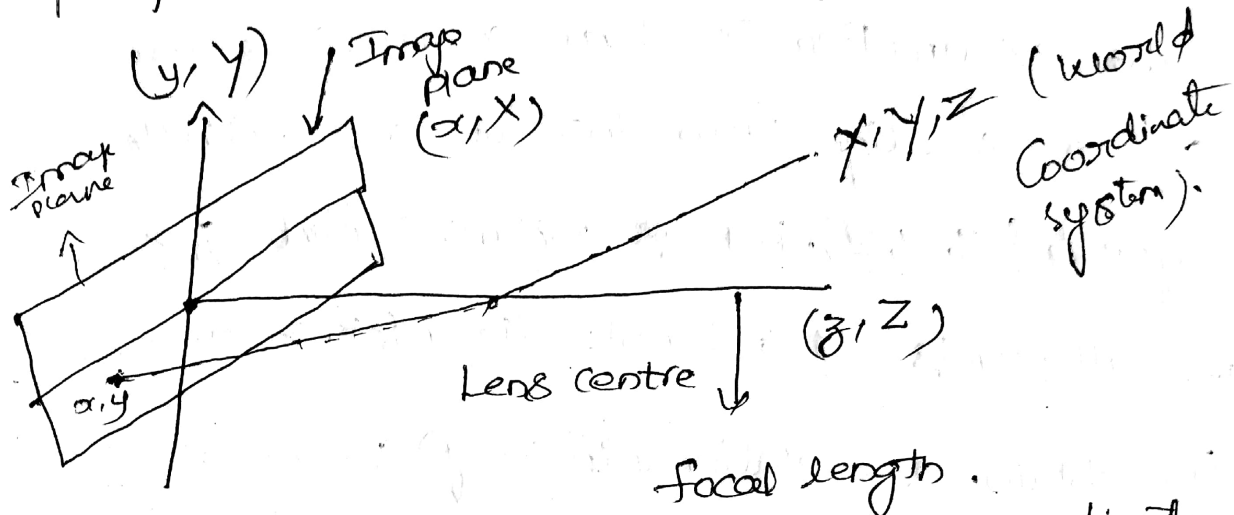 (y, Y)
Image
plane
(x, X)
Image
plane
X, Y, Z (World
Coordinate
system).
x, y
(z, Z)
Lens centre
focal length.